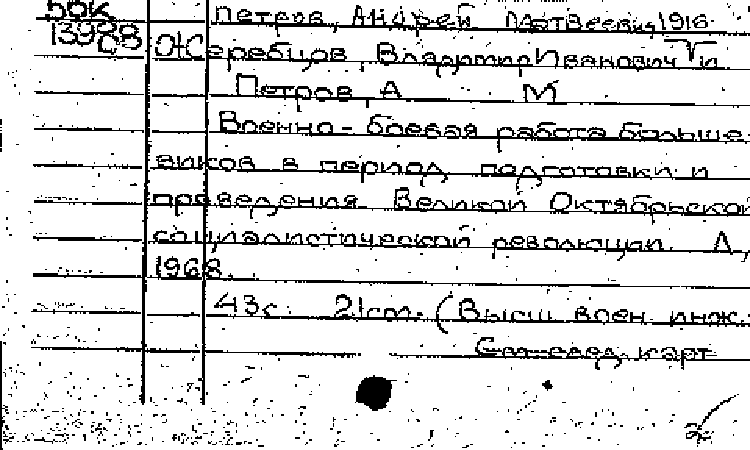 50к Петров, Андрей Матвеевич, 1916-
13988 Жеребцов, Владимир Иванович и
68
Петров, А М
Военно-боевая работа больше-
виков в период подготовки и
проведения Великой Октябрьской
социалистической революции. Л,
1968.
43с. 21см. (Высш воен инж.
См след. карт